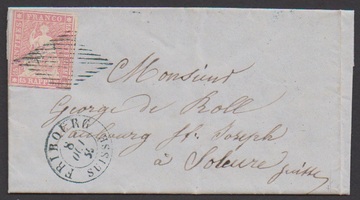 FRANCO
Monsieur
George de Roll
faubourg St. Joseph
à Soleure
Suisse
FRIBOURG SUISSE